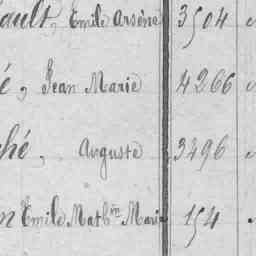 ault, Emile Arsène 3504
é, Jean Marie 4266
ché, Auguste 3496
n Emile Mathin Marie 154